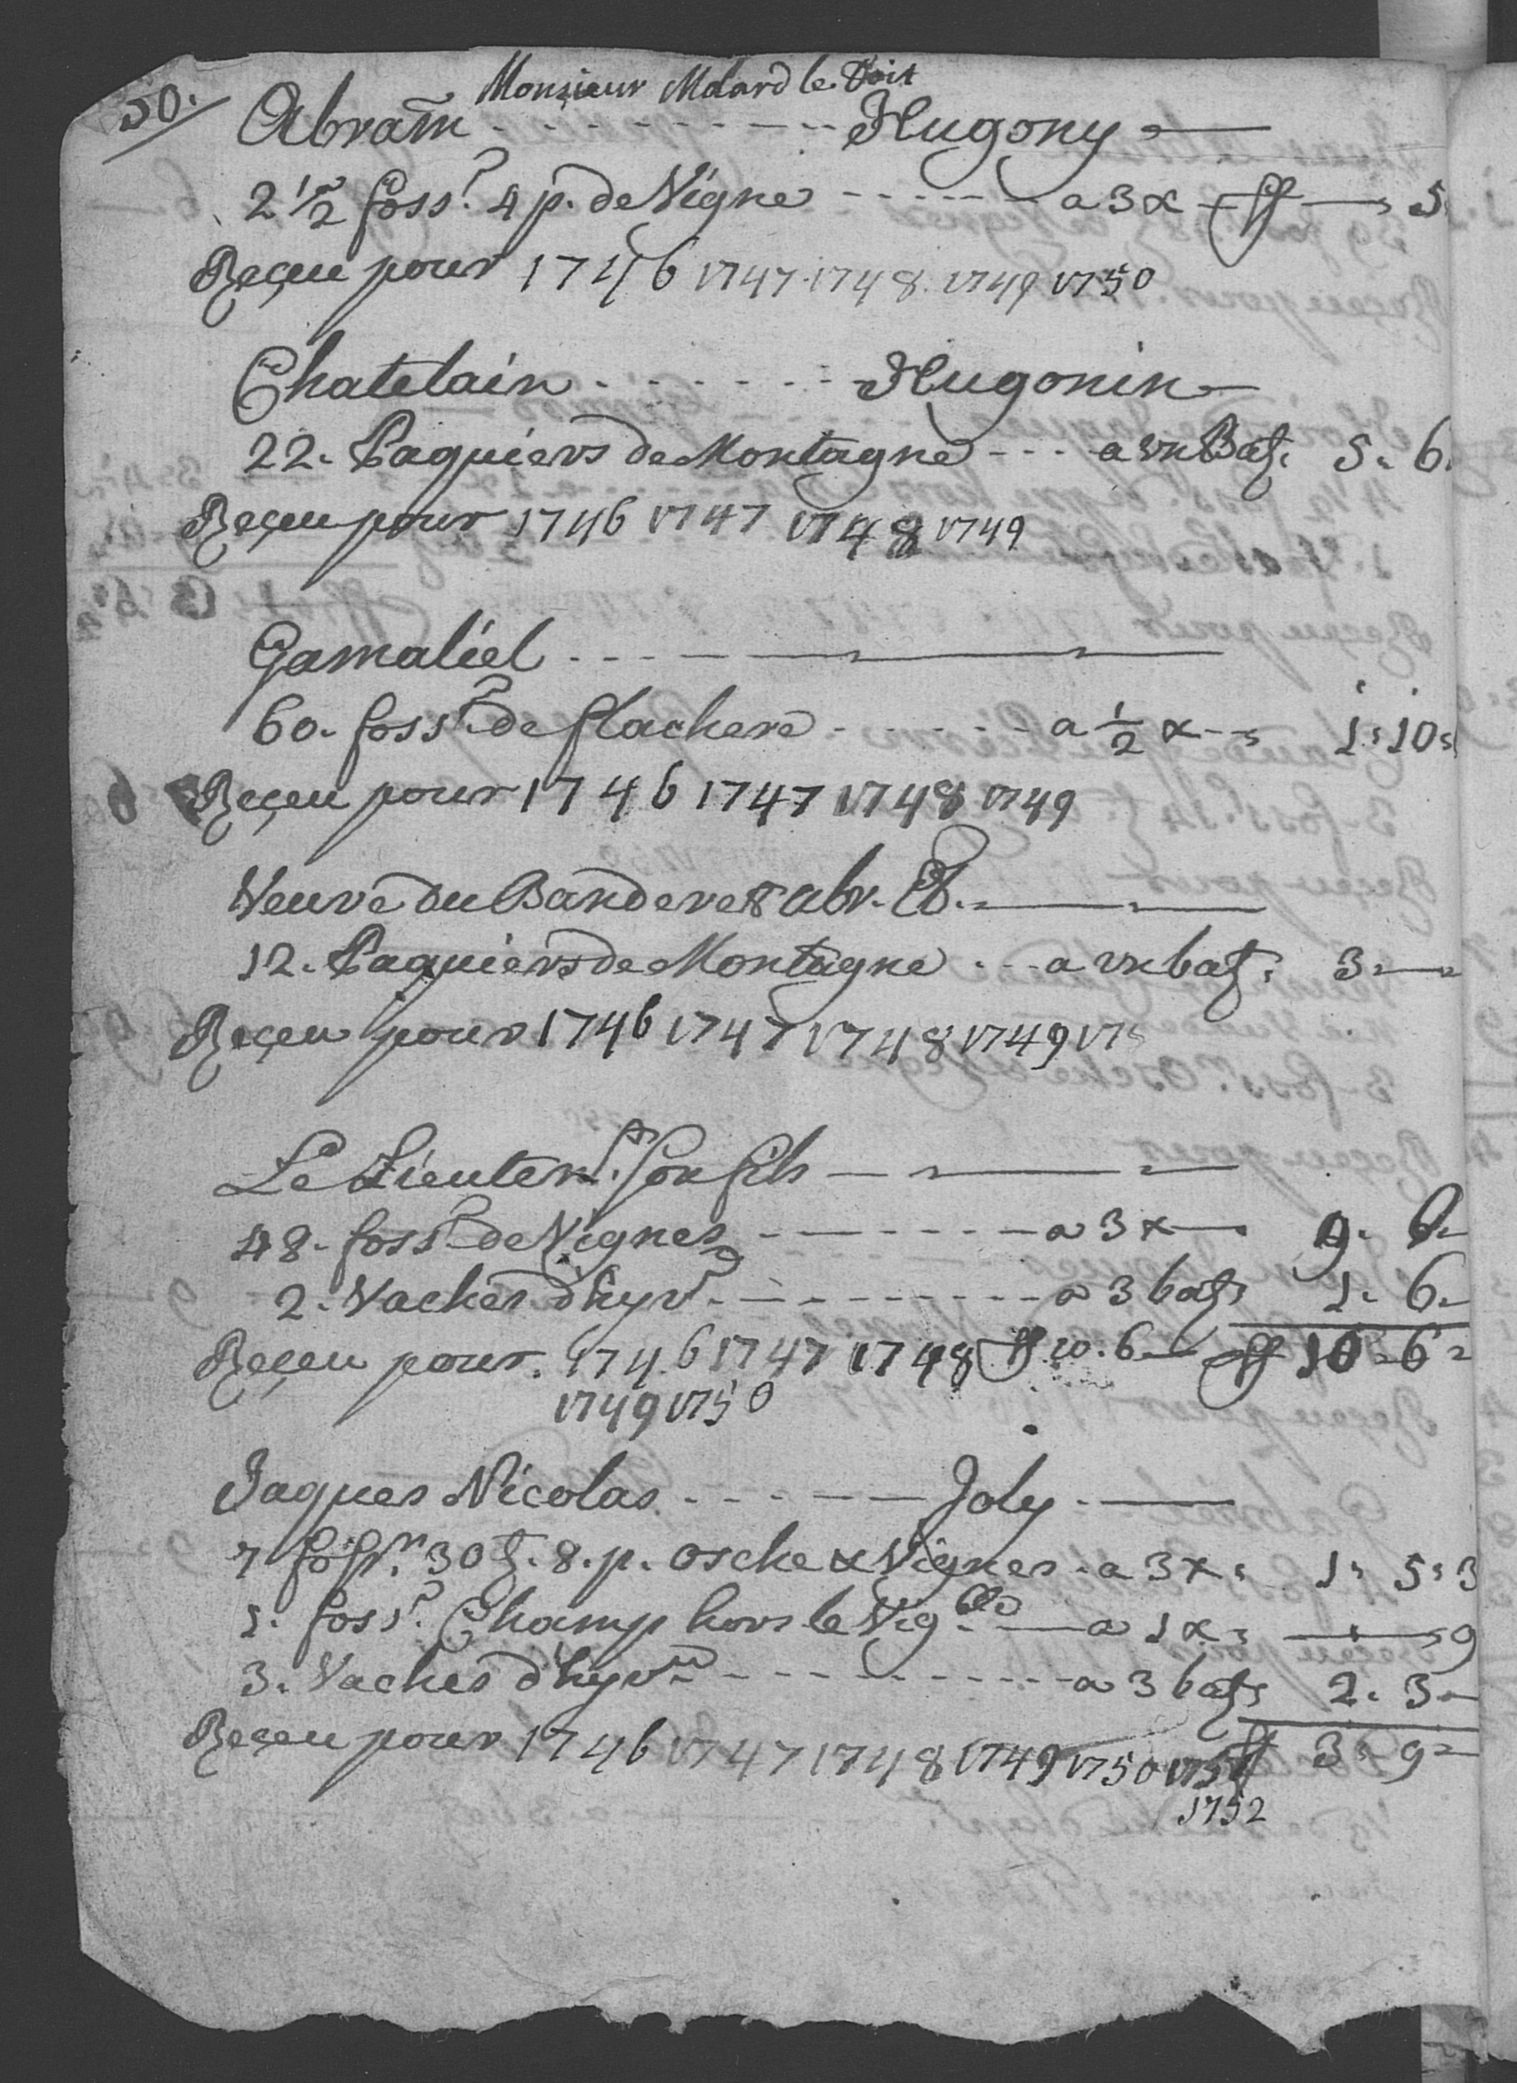 50.
Monsieur Molard le Doit
Abram - - - - - - - - Hugony
2 1/2 foss.r 4 p. de Vigne - - - - - - a 3 x ff — 5
Reçeu pour 1746 1747 1748 1749 1750
Chatelain - - - - - - Hugonin
22. Paquiers de Montagne - - - a vn Batz. 5. 6.
Reçeu pour 1746 1747 1748 1749
Gamaliel - - - -
60. foss.r de flachere - - - - - - a 1/2 x 1. 10.
Reçeu pour 1746 1747 1748 1749
Veuve du Banderet abr.
12. Paquiers de Montagne - - - a vn batz. 3. —
Reçeu pour 1746 1747 1748 1749 175
Le Lieuten.t son fils
48. foss.r de Vignes - - - - - - - a 3 x 9. 6.
2. Vaches d'hyv.r - - - - - - - - a 3 batz 1. 6.
Reçeu pour. 1746 1747 1748 ff 10. 6 — ff 10. 6.
1749 1750
Jaques Nicolas - - - - - - Joly
7 foss.rs 30 t. 8. p. Oche & Vignes. a 3 x. 1. 5. 3
1. foss.r Champ hors le Vig.ble — a 1 x. — 9
3. Vaches d'hyv.n - - - - - - - - - a 3 batz 2. 3 —
Reçeu pour 1746 1747 1748 1749 1750 1751 ff 3. 9 —
1752